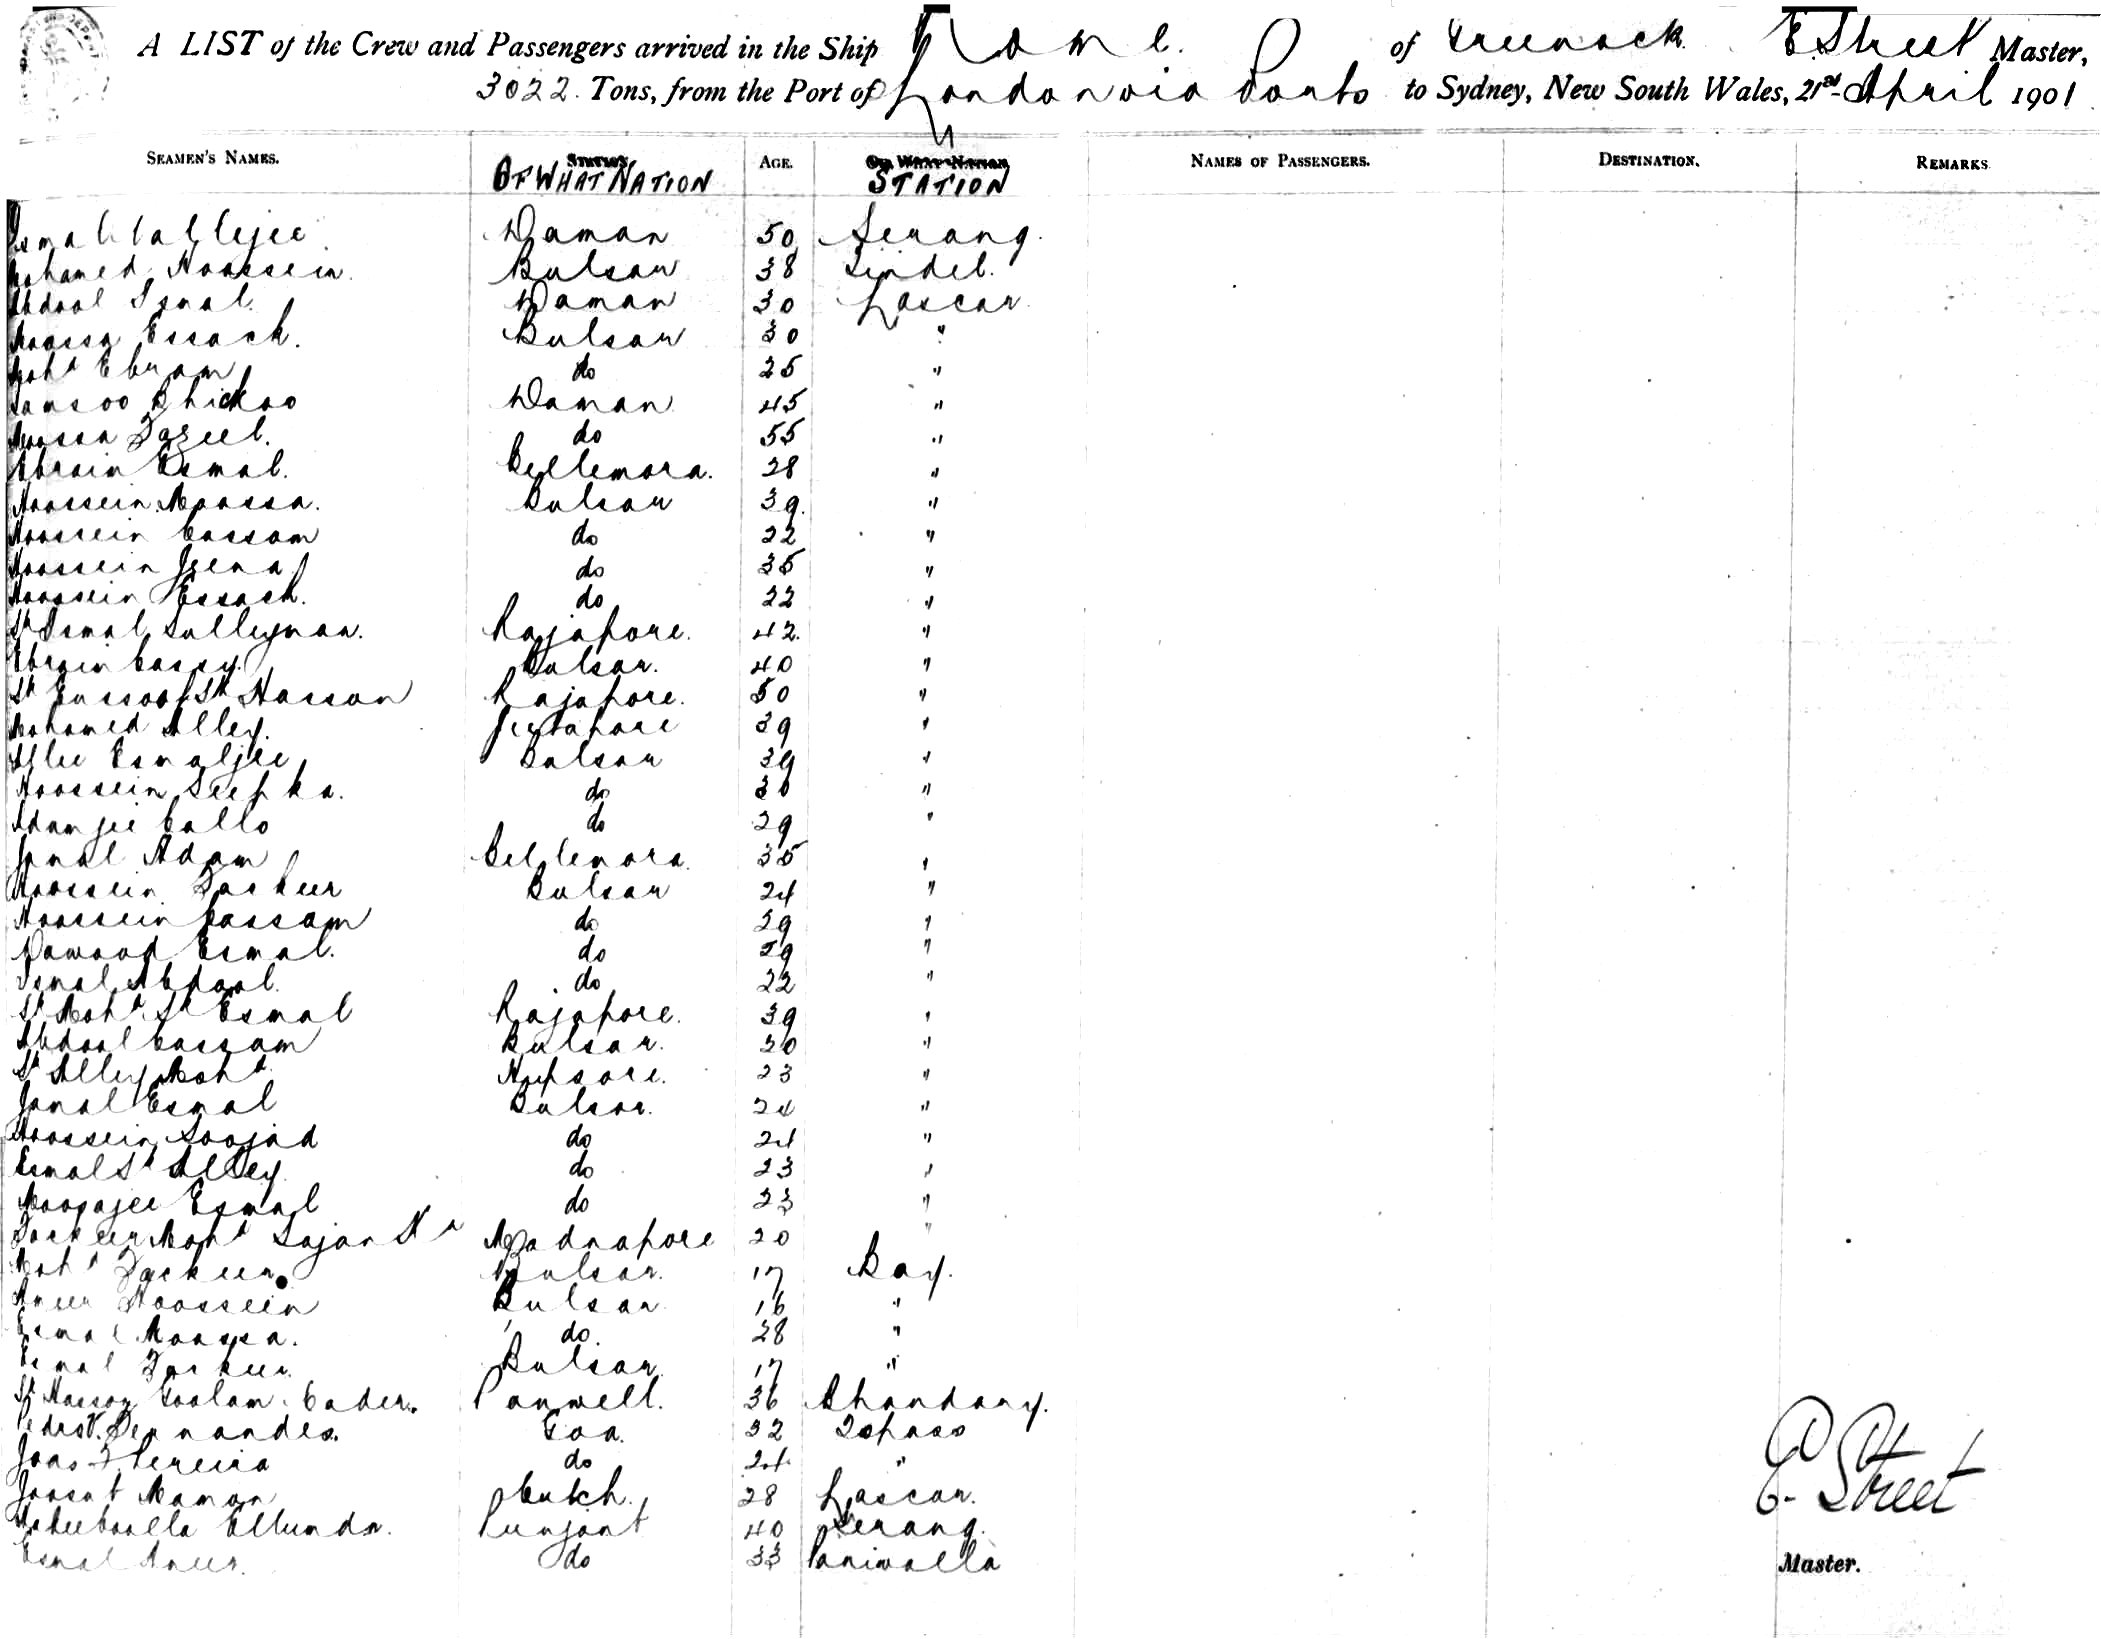 A LIST of the Crew and Passengers arrived in the Ship Rome. of Greenock. E Street Master,
3022. Tons, from the Port of London via Ports to Sydney, New South Wales, 21st April 1901
SEAMEN'S NAMES. STATION OF WHAT NATION AGE. OF WHAT NATION STATION NAMES OF PASSENGERS. DESTINATION. REMARKS
Esmal Daman 50 Serang.
Mahomed Hoossein. Bulsar 38 Tindel.
Abdool Ismal. Daman 30 Lascar.
Moossa Essack. Bulsar 30 "
Mohd Ebram do 25 "
Bhickoo Daman 45 "
Moossa do 55 "
Ebraim Esmal. Bellemora. 28 "
Hoossein Moossa. Bulsar 39. "
Hoossein Cassam do 22 "
Hoossein Jeena do 35 "
Hoossein Essack. do 22 "
Sk Ismal Sulleyman. Rajapore. 42. "
Ebraim Cassy. Bulsar. 40 "
Sk Eussoof Sk Hassan Rajapore. 50 "
Mahomed Alley. 39 "
Allee Esmaljee Bulsar 39 "
Hoossein Seepka. do 30 "
Adamjee Callo do 29 "
Jamal Adam Bellemora. 35 "
Hoossein Fackeer Bulsar 24 "
Hoossein Cassam do 29 "
Dawood Esmal. do 29 "
Ismal Abdool. do 22 "
Sk Mohd Sk Esmal Rajapore. 39 "
Abdool Cassam Bulsar. 20 "
Sk Alley Mohd 23 "
Jamal Esmal Bulsar. 24 "
Hoossein Soojad do 24 "
Esmal Sk Alley do 23 "
Moosajee Esmal do 23 "
Fackeer Mohd Madnapore 20 "
Mohd Fackeer Bulsar. 17 Boy.
Ameer Hoossein Bulsar 16 "
Esmal Moossa. do. 28 "
Esmal Fackeer. Bulsar. 17 "
Sk Hassan Goolam Cader. Panwell. 36 Bhandary.
Pedro V. Fernandes. Goa. 32 Topass
Joao F. Pereira do 24 "
Mamon Cutch. 28 Lascar.
Punjaut 40 Serang.
Esmal Ameer. do 33 Paniwalla
E. Street
Master.